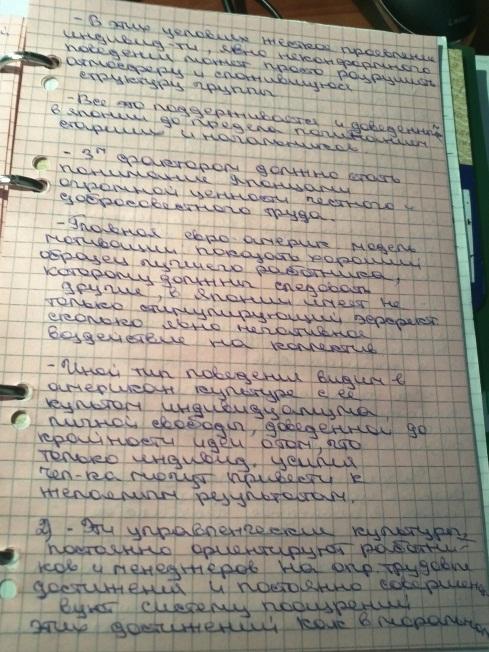 - В этих условиях жесткое проявление
индивид-ти, явно неконформного
поведения может просто разрушить
атмосферу и сложившиюся
структуру группы
- Все это поддерживается и доведенным
в японии до предела почитанием
старших и начальников
- 3м фактором должно стать
понимание японцами
огромной ценности честного и
добросовестного труда.
- Главная евро-америк модель
мотивации показать хороший
образец лучшего работника,
которому должны следовать
другие, в Японии имеет не
только стимулирующий эффект
сколько явно негативное
воздействие на коллектив
- Иной тип поведения видим в
америкон культуре с её
культом индивидуализма,
личной свободы, доведенной до
крайности идеи о том, что
только индивид. усилия
чел-ка могут привести к
желаемым результатам.
2) - Эти управленческие культуры
постоянно ориентируют работни-
ков и менеджеров на опр. трудовые
достижения и постоянно совершенс
вуют систему поощрений
этих достижений как в моральном